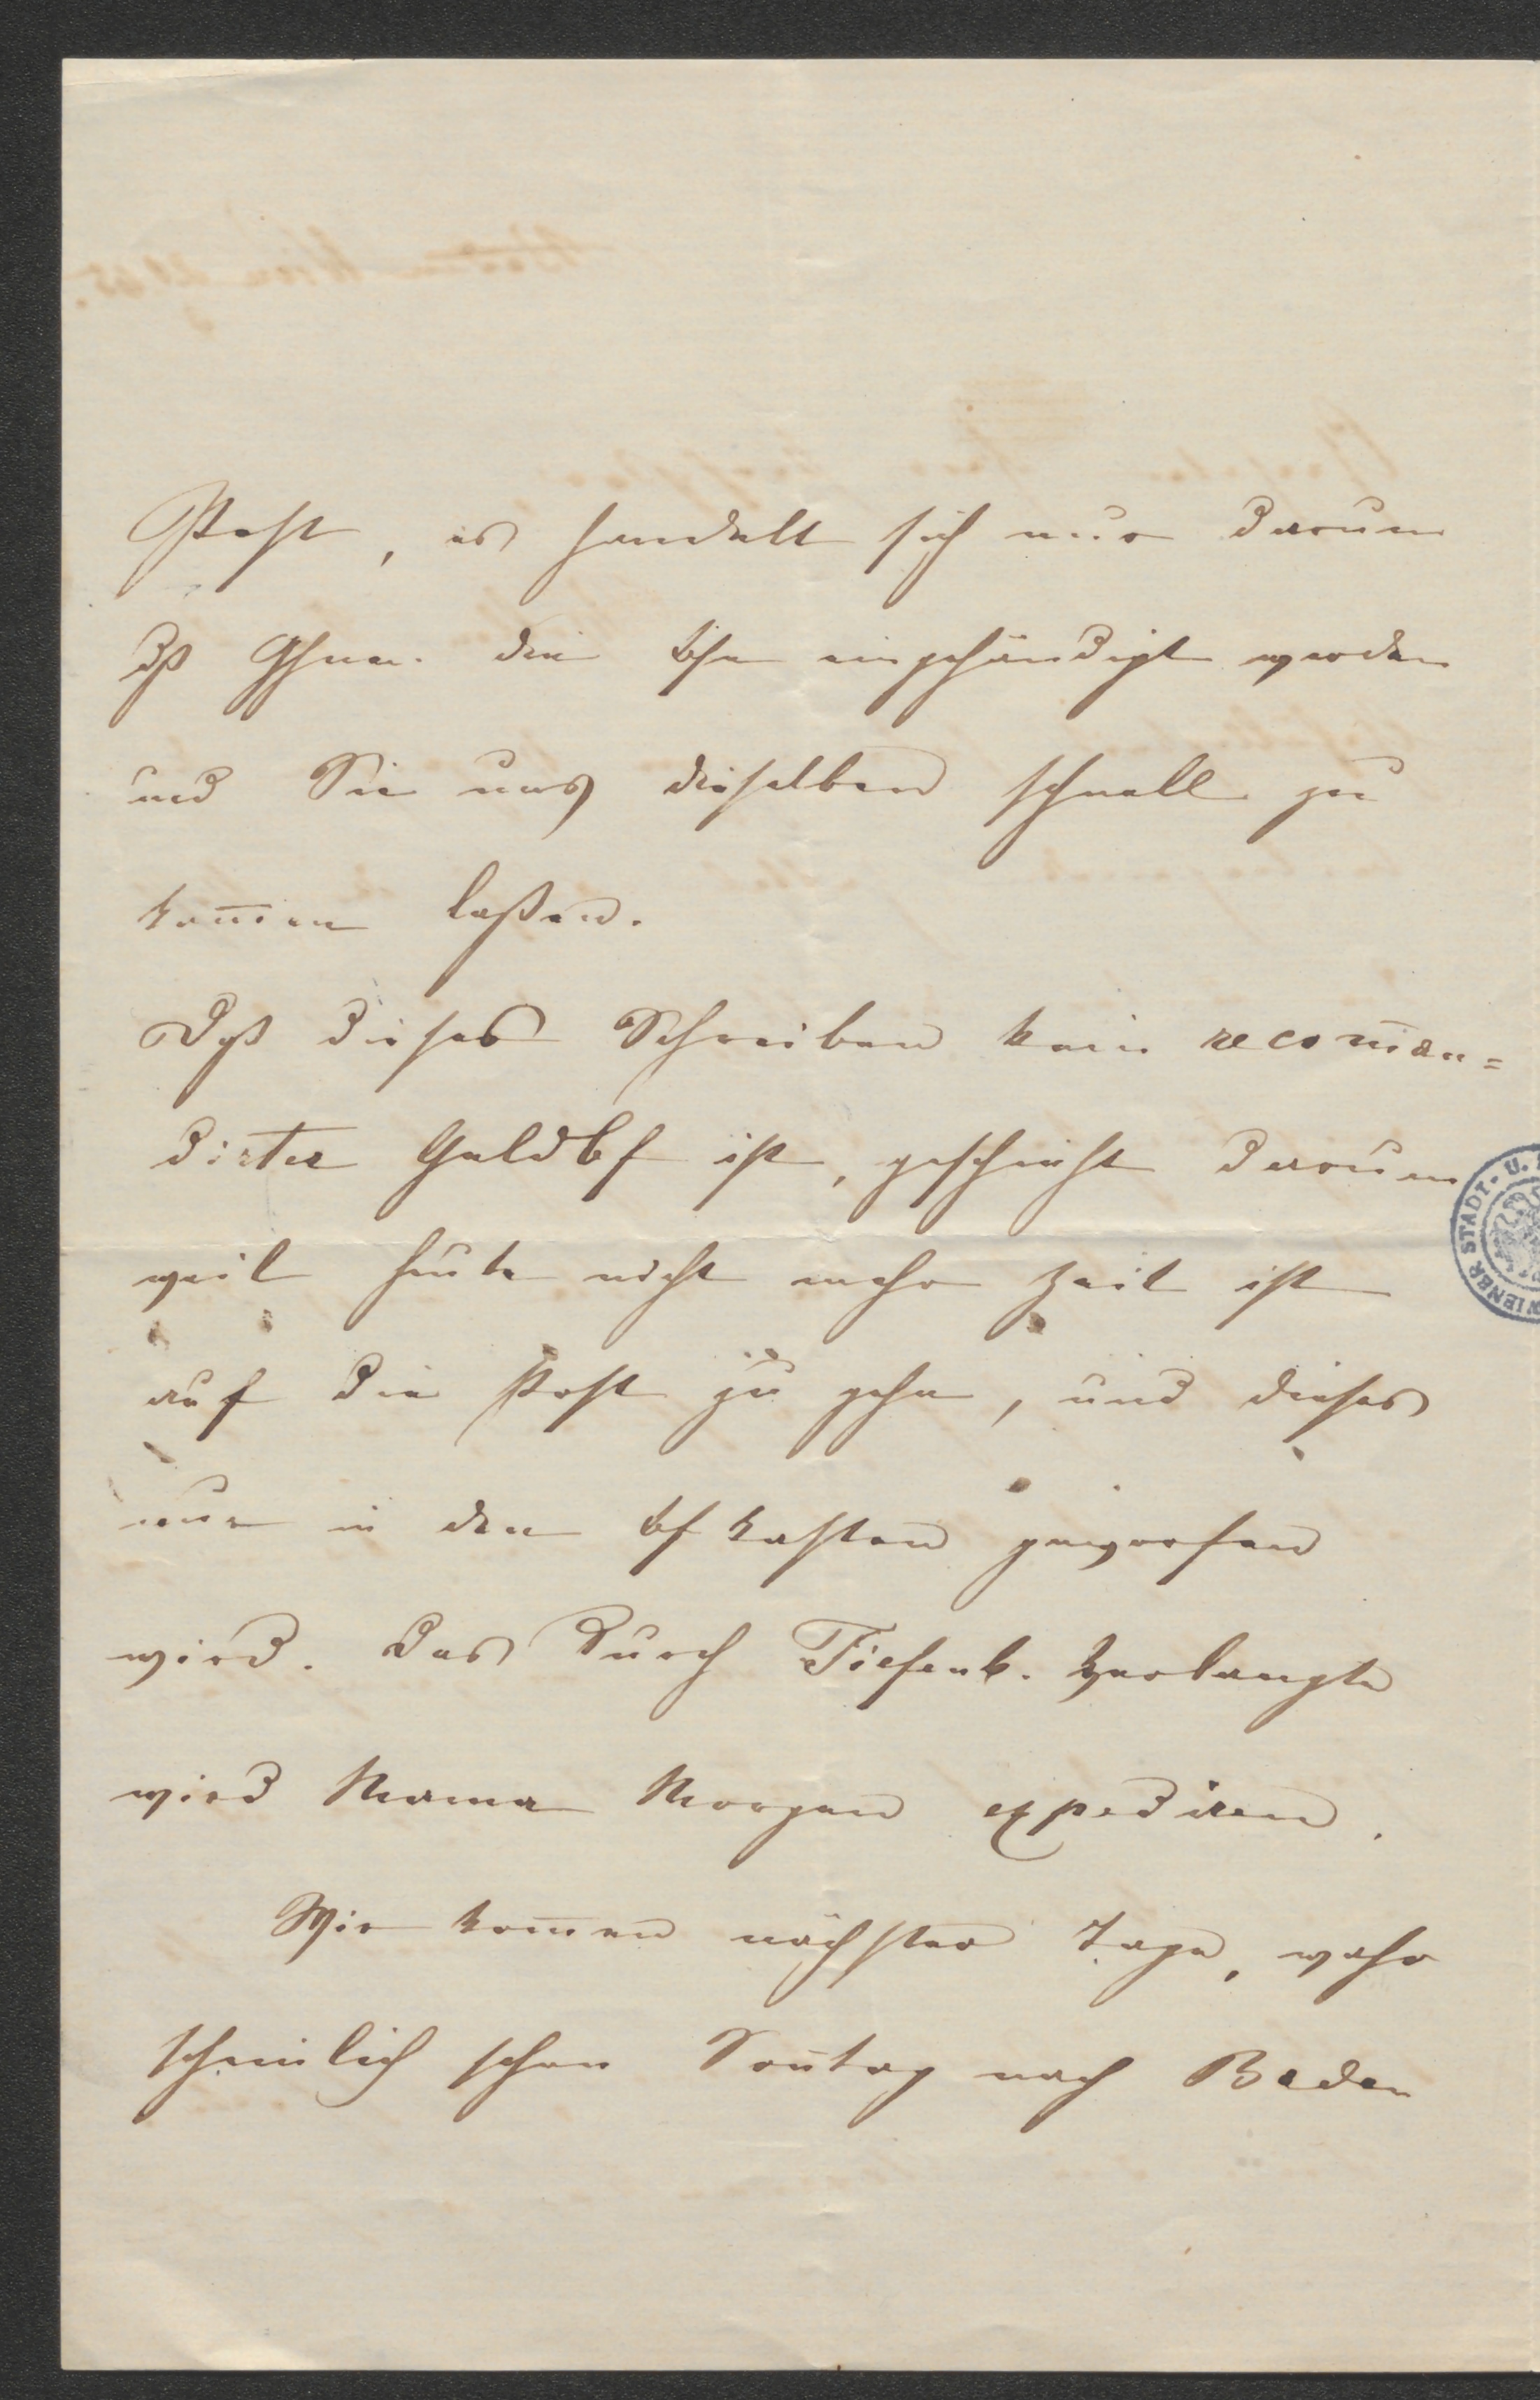 Post, es handelt sich nur darum
dß Ihnen die bfe eingehändigt werden
und Sie uns dieselben schnell zu
kom̅en laßen.
Dß dieses Schreiben kein recom̅an=
dirter Geldbf ist, geschieht darum
weil heute nicht mehr Zeit ist
auf die Post zu gehn, und dieses
nur in den bfkasten geworfen
wird. Das durch Tiefenb. Verlangte
wird Mama Morgen expediren.
Wir kom̅en nächster Tage, wahr
scheinlich schon Son̅tag nach Baden
WIENER STADT- U.